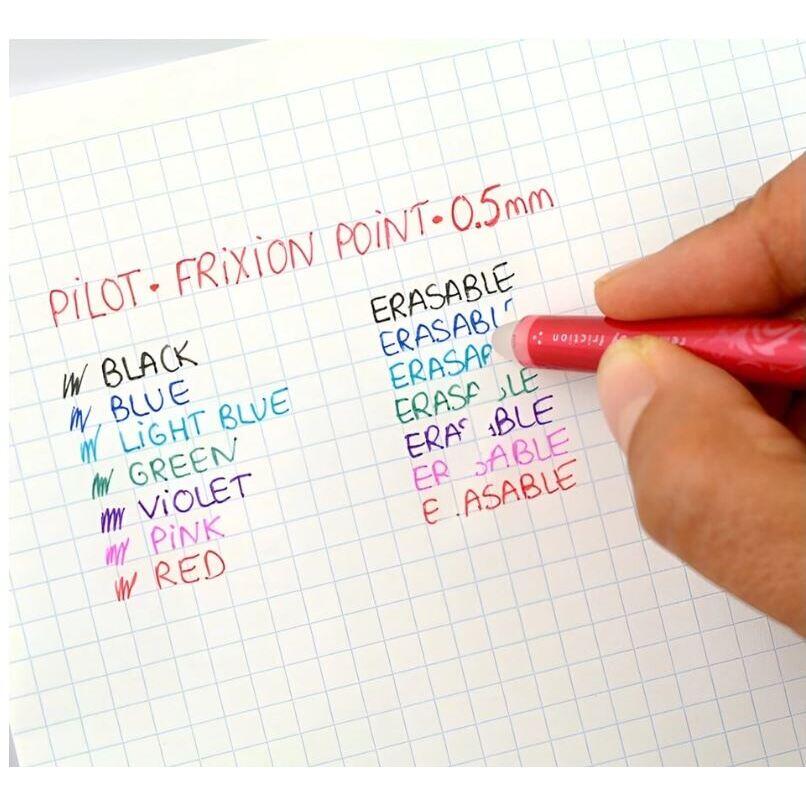 PiLOT • FRiXiON POiNT • 0.5mm
BLACK
BLUE
LiGHT BLUE
GREEN
ViOLET
PiNK
RED
ERASABLE
ERASABL
ERASA
ERAS LE
ERA BLE
ER ABLE
E ASABLE
by friction